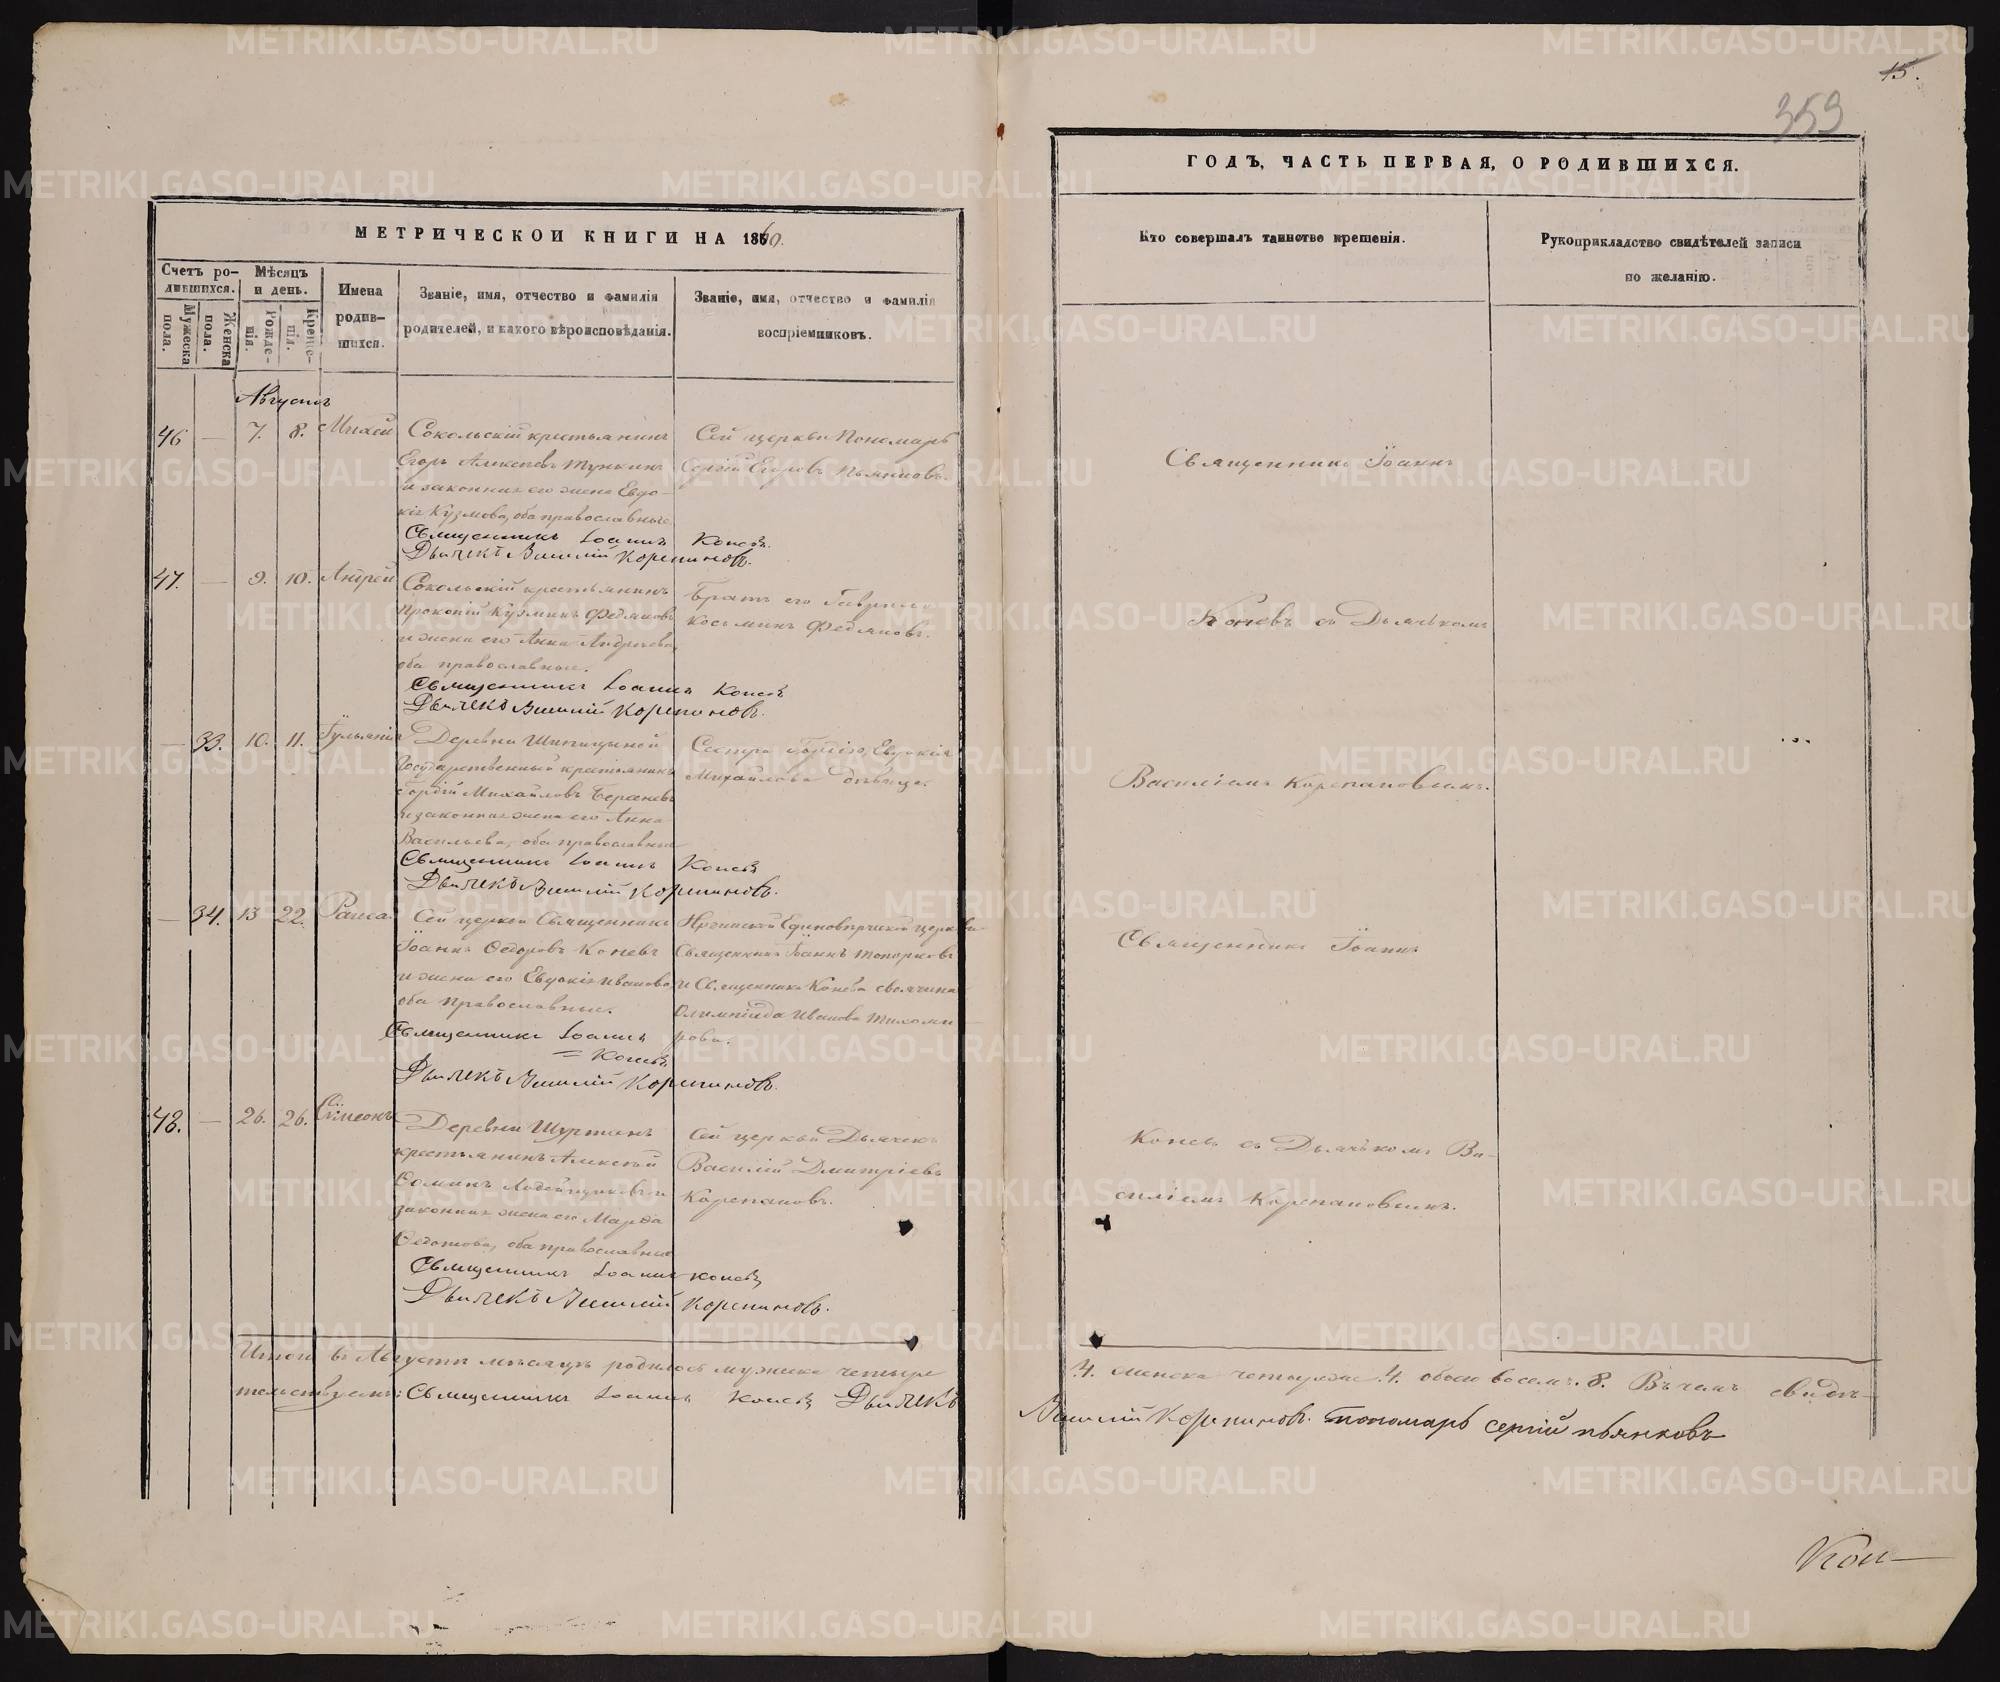 15.
359
МЕТРИЧЕСКОИ КНИГИ НА 1860.
Счетъ ро-
дившихся.
Мужеска пола.
Женска пола.
Мѣсяцъ
и день.
Рожде-
нія.
Креще-
нія.
Имена
родив-
шихся.
Званіе, имя, отчество и фамилія
родителей, и какого вѣроисповѣданія.
Званіе, имя, отчество и фамилія
воспріемниковъ.
Августъ
46 — 7. 8. Михей
Сокольскій крестьянинъ
Егоръ Алексѣевъ
и законная его жена Евдо-
кія Кузмова, оба православные.
Сей церкви Пономарь
Сергій Егоровъ Пьянковъ.
Священникъ Іоаннъ Коневъ.
Дьячекъ Василій Корепановъ.
47. — 9. 10. Андрей
Сокольскій крестьянинъ
Прокопій Кузминъ Федяковъ
и жена его Анна Андреева,
оба православные.
Братъ его Гаврило
Косьминъ Федяковъ.
Священникъ Іоаннъ Коневъ
Дьячекъ Василій Корепановъ.
— 33. 10. 11. Іульянія
Деревни Шипицыной
Государственный крестьянинъ
Гордій Михайловъ
и законная жена его Анна
Васильева, оба православные
Сестра Гордію, Евдокія
Михайлова дѣвица.
Священникъ Іоаннъ Коневъ
Дьячекъ Василій Корепановъ.
— 34. 13 22. Раиса
Сей церкви Священникъ
Іоаннъ Ѳедоровъ Коневъ
и жена его Евдокія Иванова,
оба православные.
Единовѣрческой церкви
Священникъ Іоаннъ Топорковъ
и Священника Конева своячина
Олимпіада Иванова Тихоми-
рова.
Священникъ Іоаннъ
= Коневъ
Дьячекъ Василій Корепановъ.
48. — 26. 26. Сѵмеонъ
Деревни Шуртанъ
крестьянинъ Алексѣй
Ѳоминъ и
законная жена его Марѳа
Ѳедотова, оба православные
Сей церкви Дьячекъ
Василій Дмитріевъ
Корепановъ.
Священникъ Іоаннъ Коневъ
Дьячекъ Василій Корепановъ.
Итого въ Августѣ мѣсяцѣ родилось мужска четыре
тельствуемъ: Священникъ Іоаннъ Коневъ Дьячекъ
ГОДЪ, ЧАСТЬ ПЕРВАЯ, О РОДИВШИХСЯ.
Кто совершалъ таинство крещенія.
Рукоприкладство свидѣтелей записи
по желанію.
Священникъ Іоаннъ
Коневъ съ Дьячкомъ
Василіемъ Корепановымъ.
Священникъ Іоаннъ
Коневъ съ Дьячкомъ Ва-
силіемъ Корепановымъ.
4. женска четыре 4. обоего восемь. 8. Въ чемъ свидѣ-
Василій Корепановъ. Пономарь Сергій Пьянковъ
Кон—
METRIKI.GASO-URAL.RU